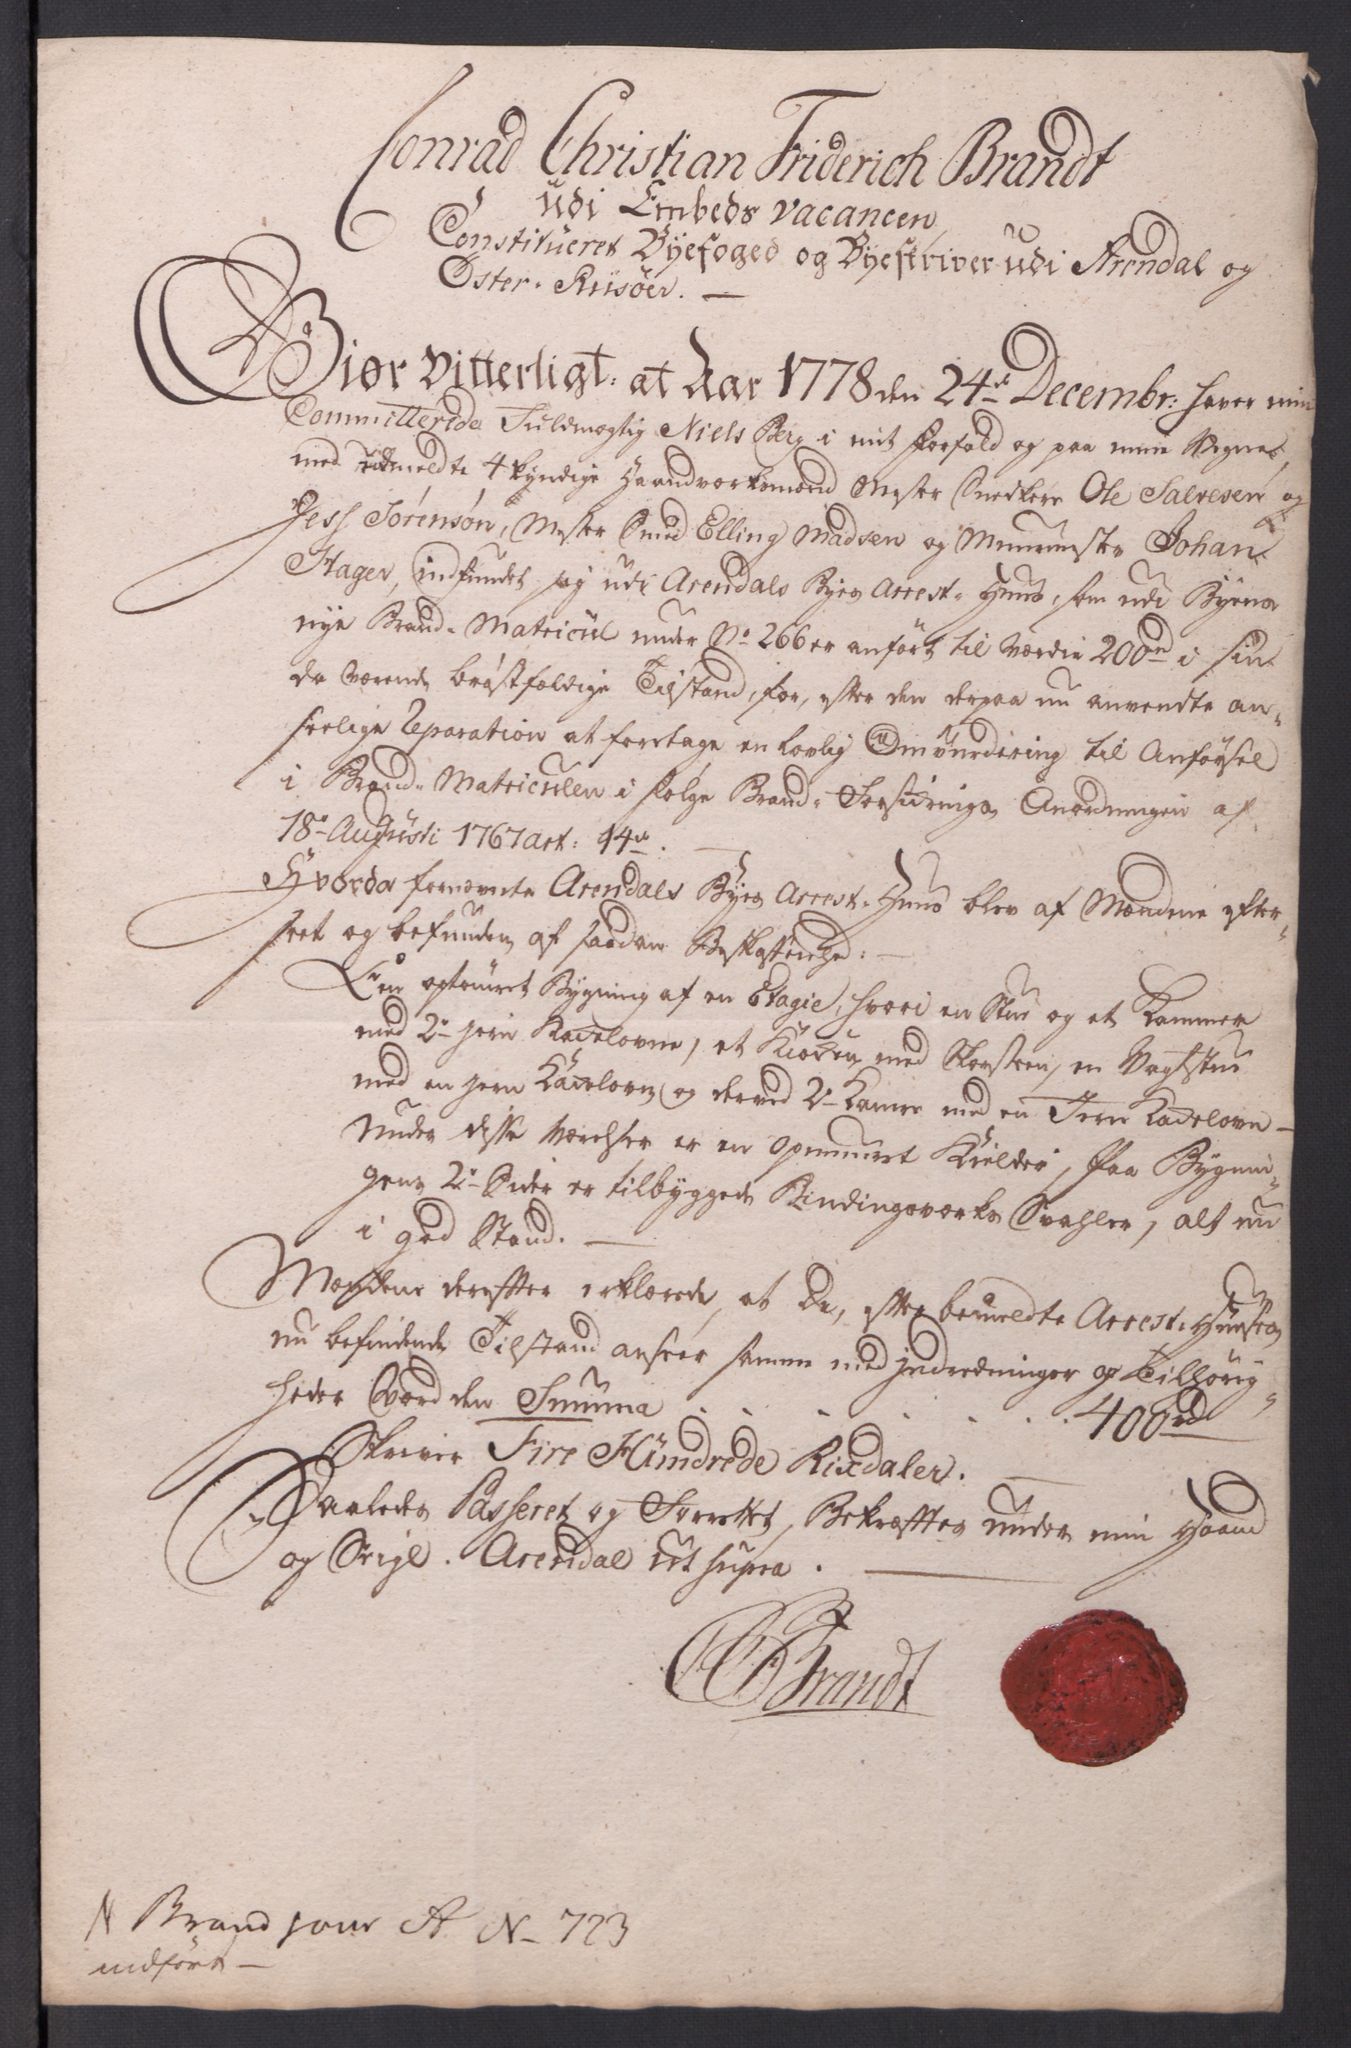 Conrad Christian Friderich Brandt
udi Embeds vacancen
Constitueret Byefoged og Byeskriver udi Arendal og
Öster-Riisöer. —
Giör Vitterligt: at Aar 1778 den 24de Decembr: haver min
Committerede Fuldmægtig Niels Berg i mit Forfald og paa mine Vegne,
med udmeldte 4 kyndige Haandværksmænd Mester Snedkere Ole Salvesen og
Jess Sörensön, Mester Smed Elling Madsen og Muurmester Johan
Hager, indfundet sig udi Arendals Byes Arrest-Huus, som udi Byens
nye Brand-Matricul under No 266 er anfört til Værdie 200rd i sin
da værende bröstfældige Tilstand, for, efter den derpaa nu anvendte an-
seelige Reparation at foretage en Lovlig Omvurdering til Anförsel
i Brand-Matriculen i fölge Brand-Forsikrings Anordningen af
18de Augusti 1767 art: 14de. —
Hvorda fornævnte Arendals Byes Arrest-Huus blev af Mændene efter-
seet og befunden af saadan Beskaffenhed: —
Een optömret Bygning af en Etagie, hvori en Stue og et Kammer
med 2de Jern Kackelovne, et Kiöcken med Skorsteen, en Vagtstue
med en Jern Kackelovn og derved 2de Kamre med en Jern Kackelovn —
Under disse Værelser er en opmuuret Kielder, Paa Bygnin-
gens 2de Sider er tilbyggede Bindingsværks Svahler, alt nu
i god Stand. —
Mændene derefter erklærede, at De, efter bemeldte Arrest-Huuses
nu befindende Tilstand anseer samme med Indredninger og Tilhörig-
heder Værd den Summa . . . . . . . 400rd
Skriver Fire Hundrede Rixdaler. —
Saaledes Passeret og Forrettet, Bekræftes under min Haand
og Seigl. Arendal ut supra. —
CCFBrandt
Brand jour A No 723
indfört —